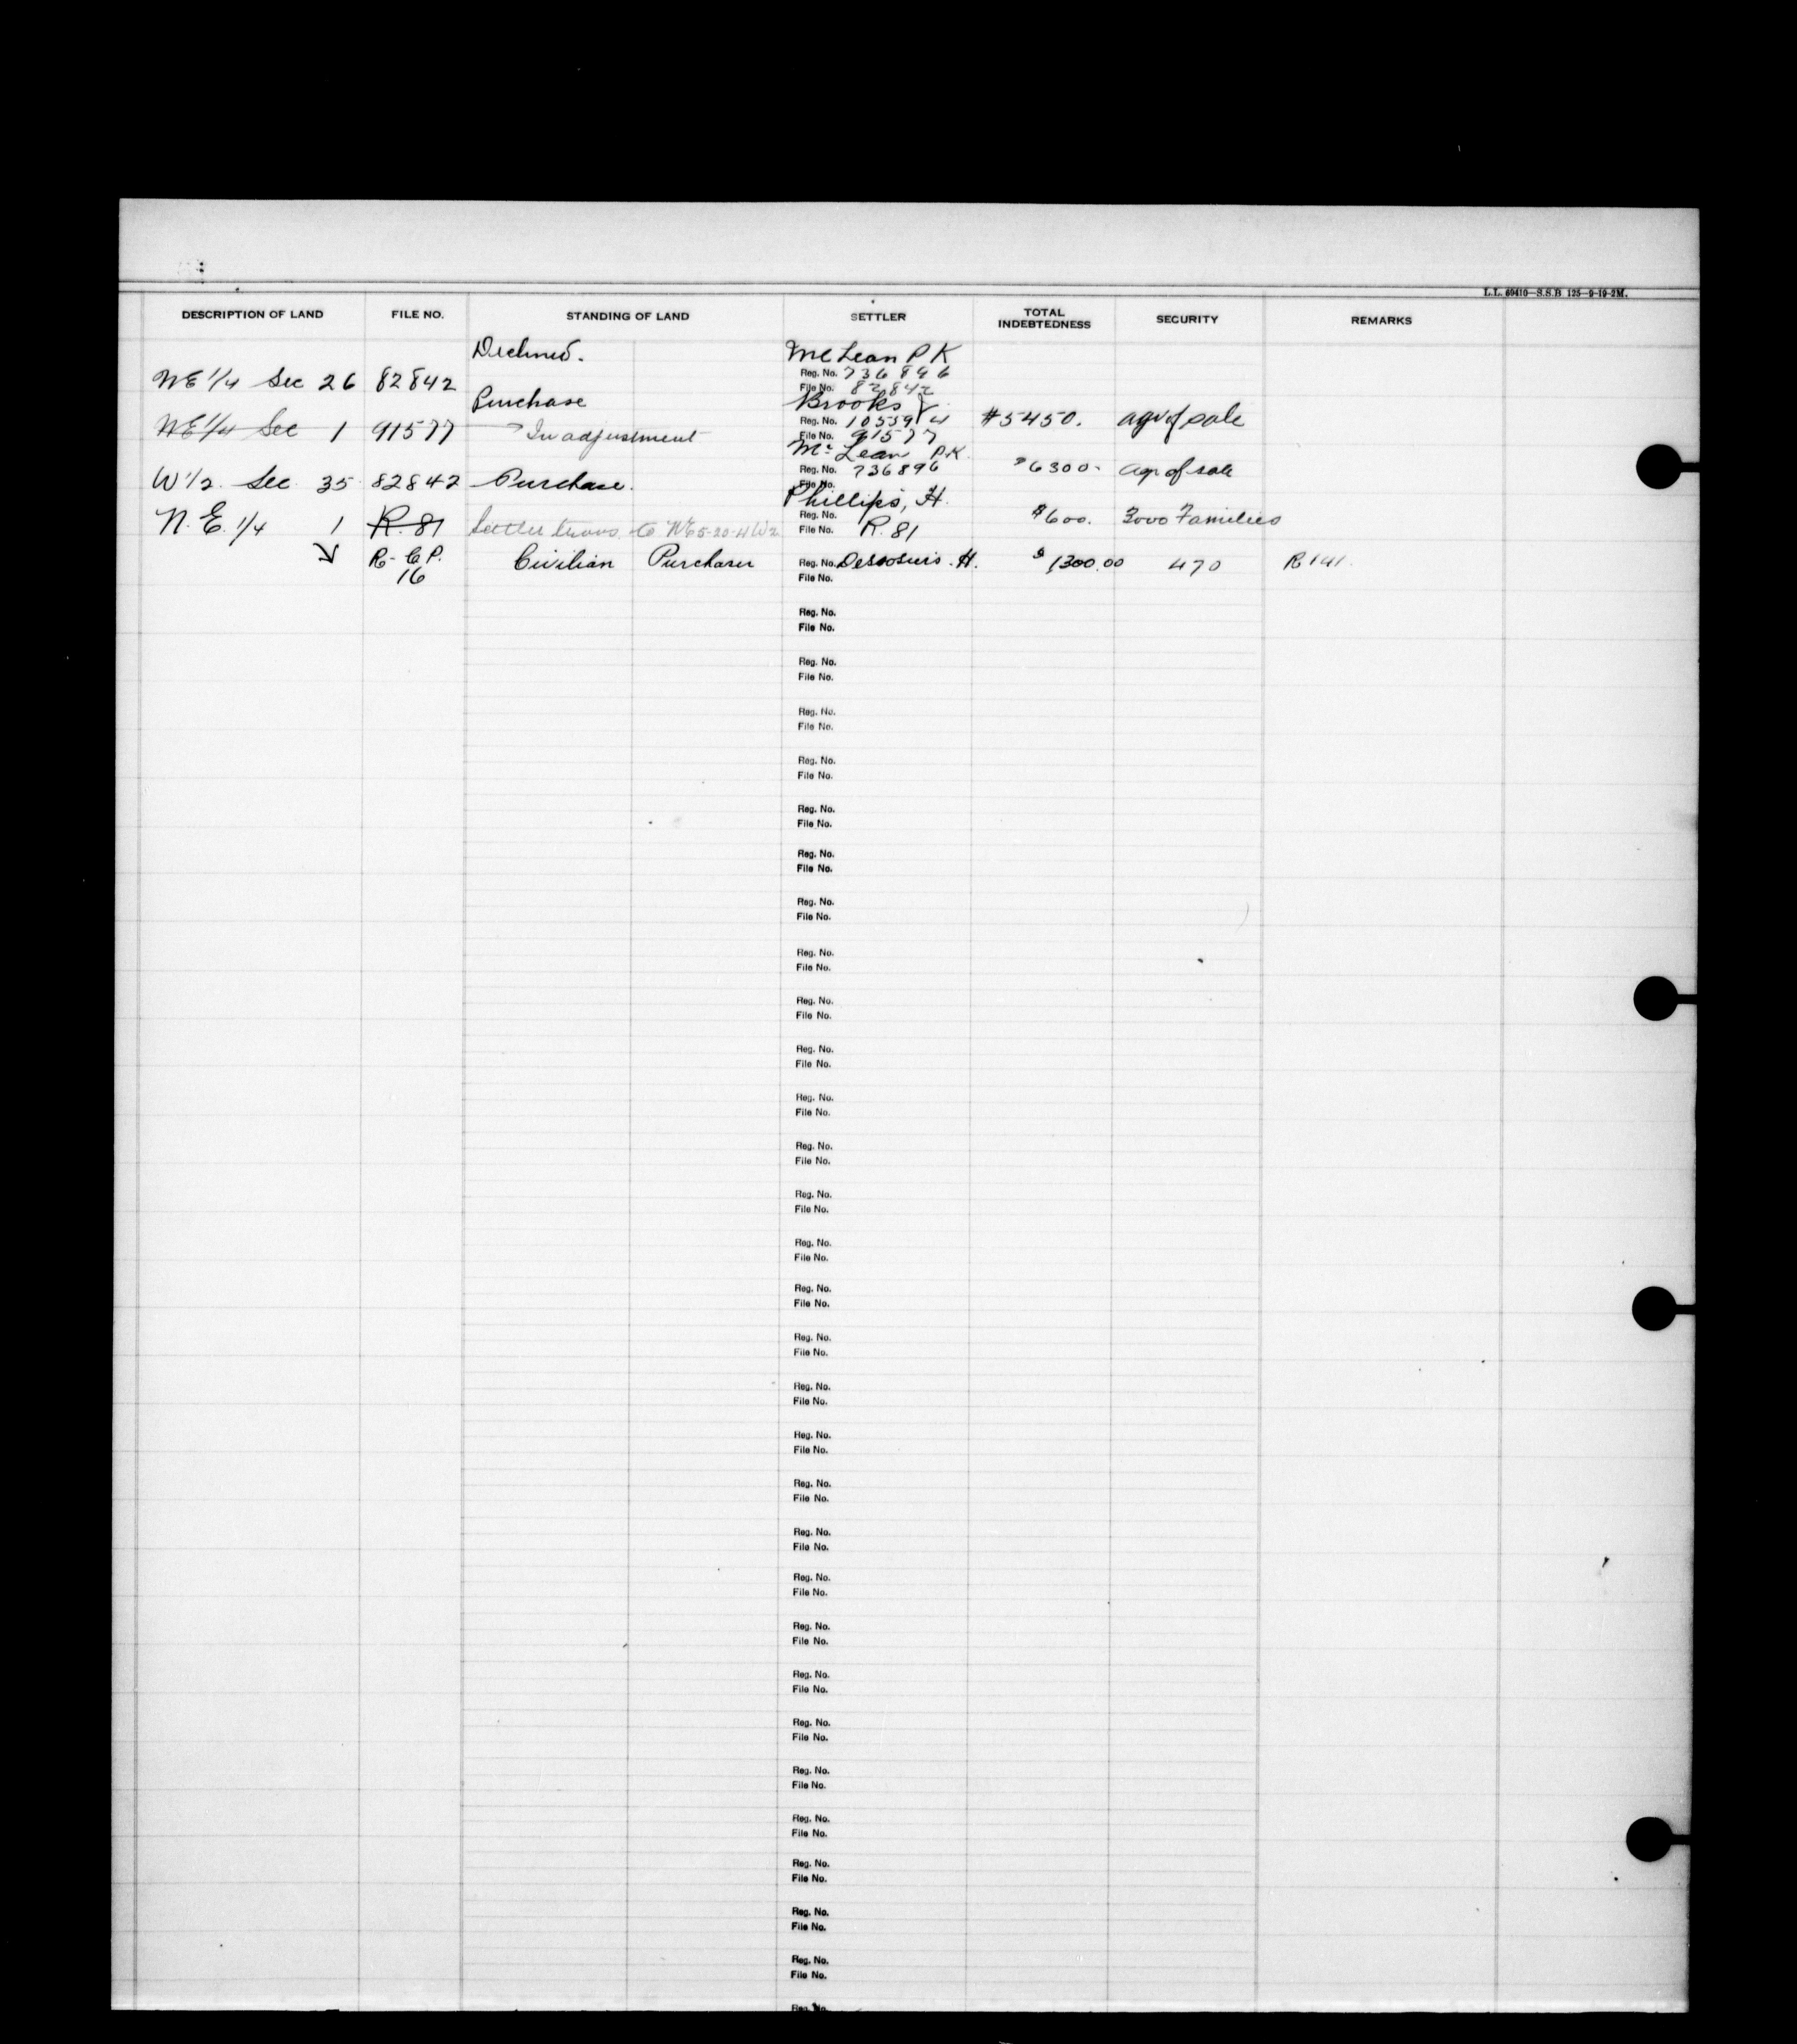 L.L. 69410—S.S.B. 125—9-19-2M.
DESCRIPTION OF LAND FILE NO. STANDING OF LAND SETTLER TOTAL INDEBTEDNESS SECURITY REMARKS
Declined. McLean P K
NE 1/4 Sec 26 82842 Reg. No. 736896
File No. 82842
Purchase Brooks Y
NE 1/4 Sec 1 91577 In adjustment Reg. No. 1055914 $5450. agr of sale
File No. 91577
McLean P.K.
W 1/2. Sec. 35 82842 Purchase. Reg. No. 736896 $6300. agr of sale
File No.
Phillips, H.
N.E. 1/4 1 R. 81 Settler trans. to NE 5-20-4 W2 Reg. No. $600. 3000 Families
File No. R. 81
R-C.P. 16 Civilian Purchaser Reg. No. H. $1300.00 470 R 141.
File No.
Reg. No.
File No.
Reg. No.
File No.
Reg. No.
File No.
Reg. No.
File No.
Reg. No.
File No.
Reg. No.
File No.
Reg. No.
File No.
Reg. No.
File No.
Reg. No.
File No.
Reg. No.
File No.
Reg. No.
File No.
Reg. No.
File No.
Reg. No.
File No.
Reg. No.
File No.
Reg. No.
File No.
Reg. No.
File No.
Reg. No.
File No.
Reg. No.
File No.
Reg. No.
File No.
Reg. No.
File No.
Reg. No.
File No.
Reg. No.
File No.
Reg. No.
File No.
Reg. No.
File No.
Reg. No.
File No.
Reg. No.
File No.
Reg. No.
File No.
Reg. No.
File No.
Reg. No.
File No.
Reg. No.